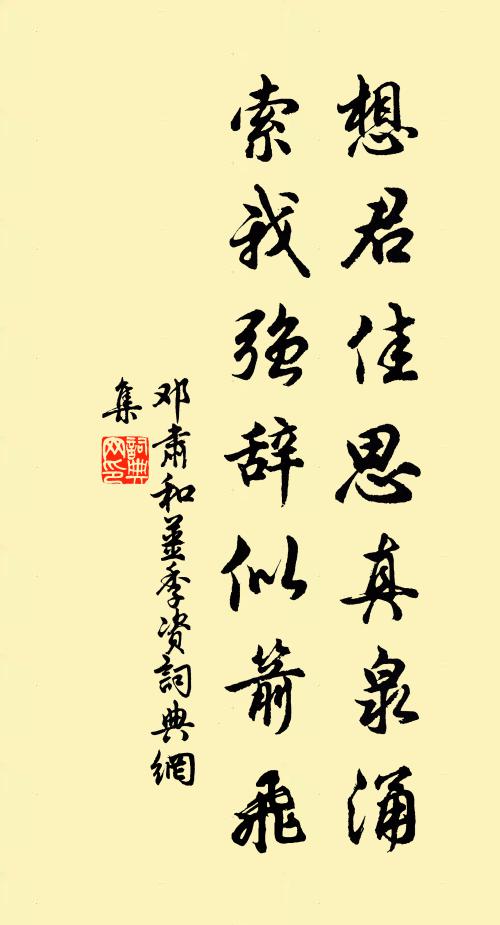 想君佳思真泉涌
索我强辞似箭飛
邓肅和薑季资詞典網
集
詞典
网印